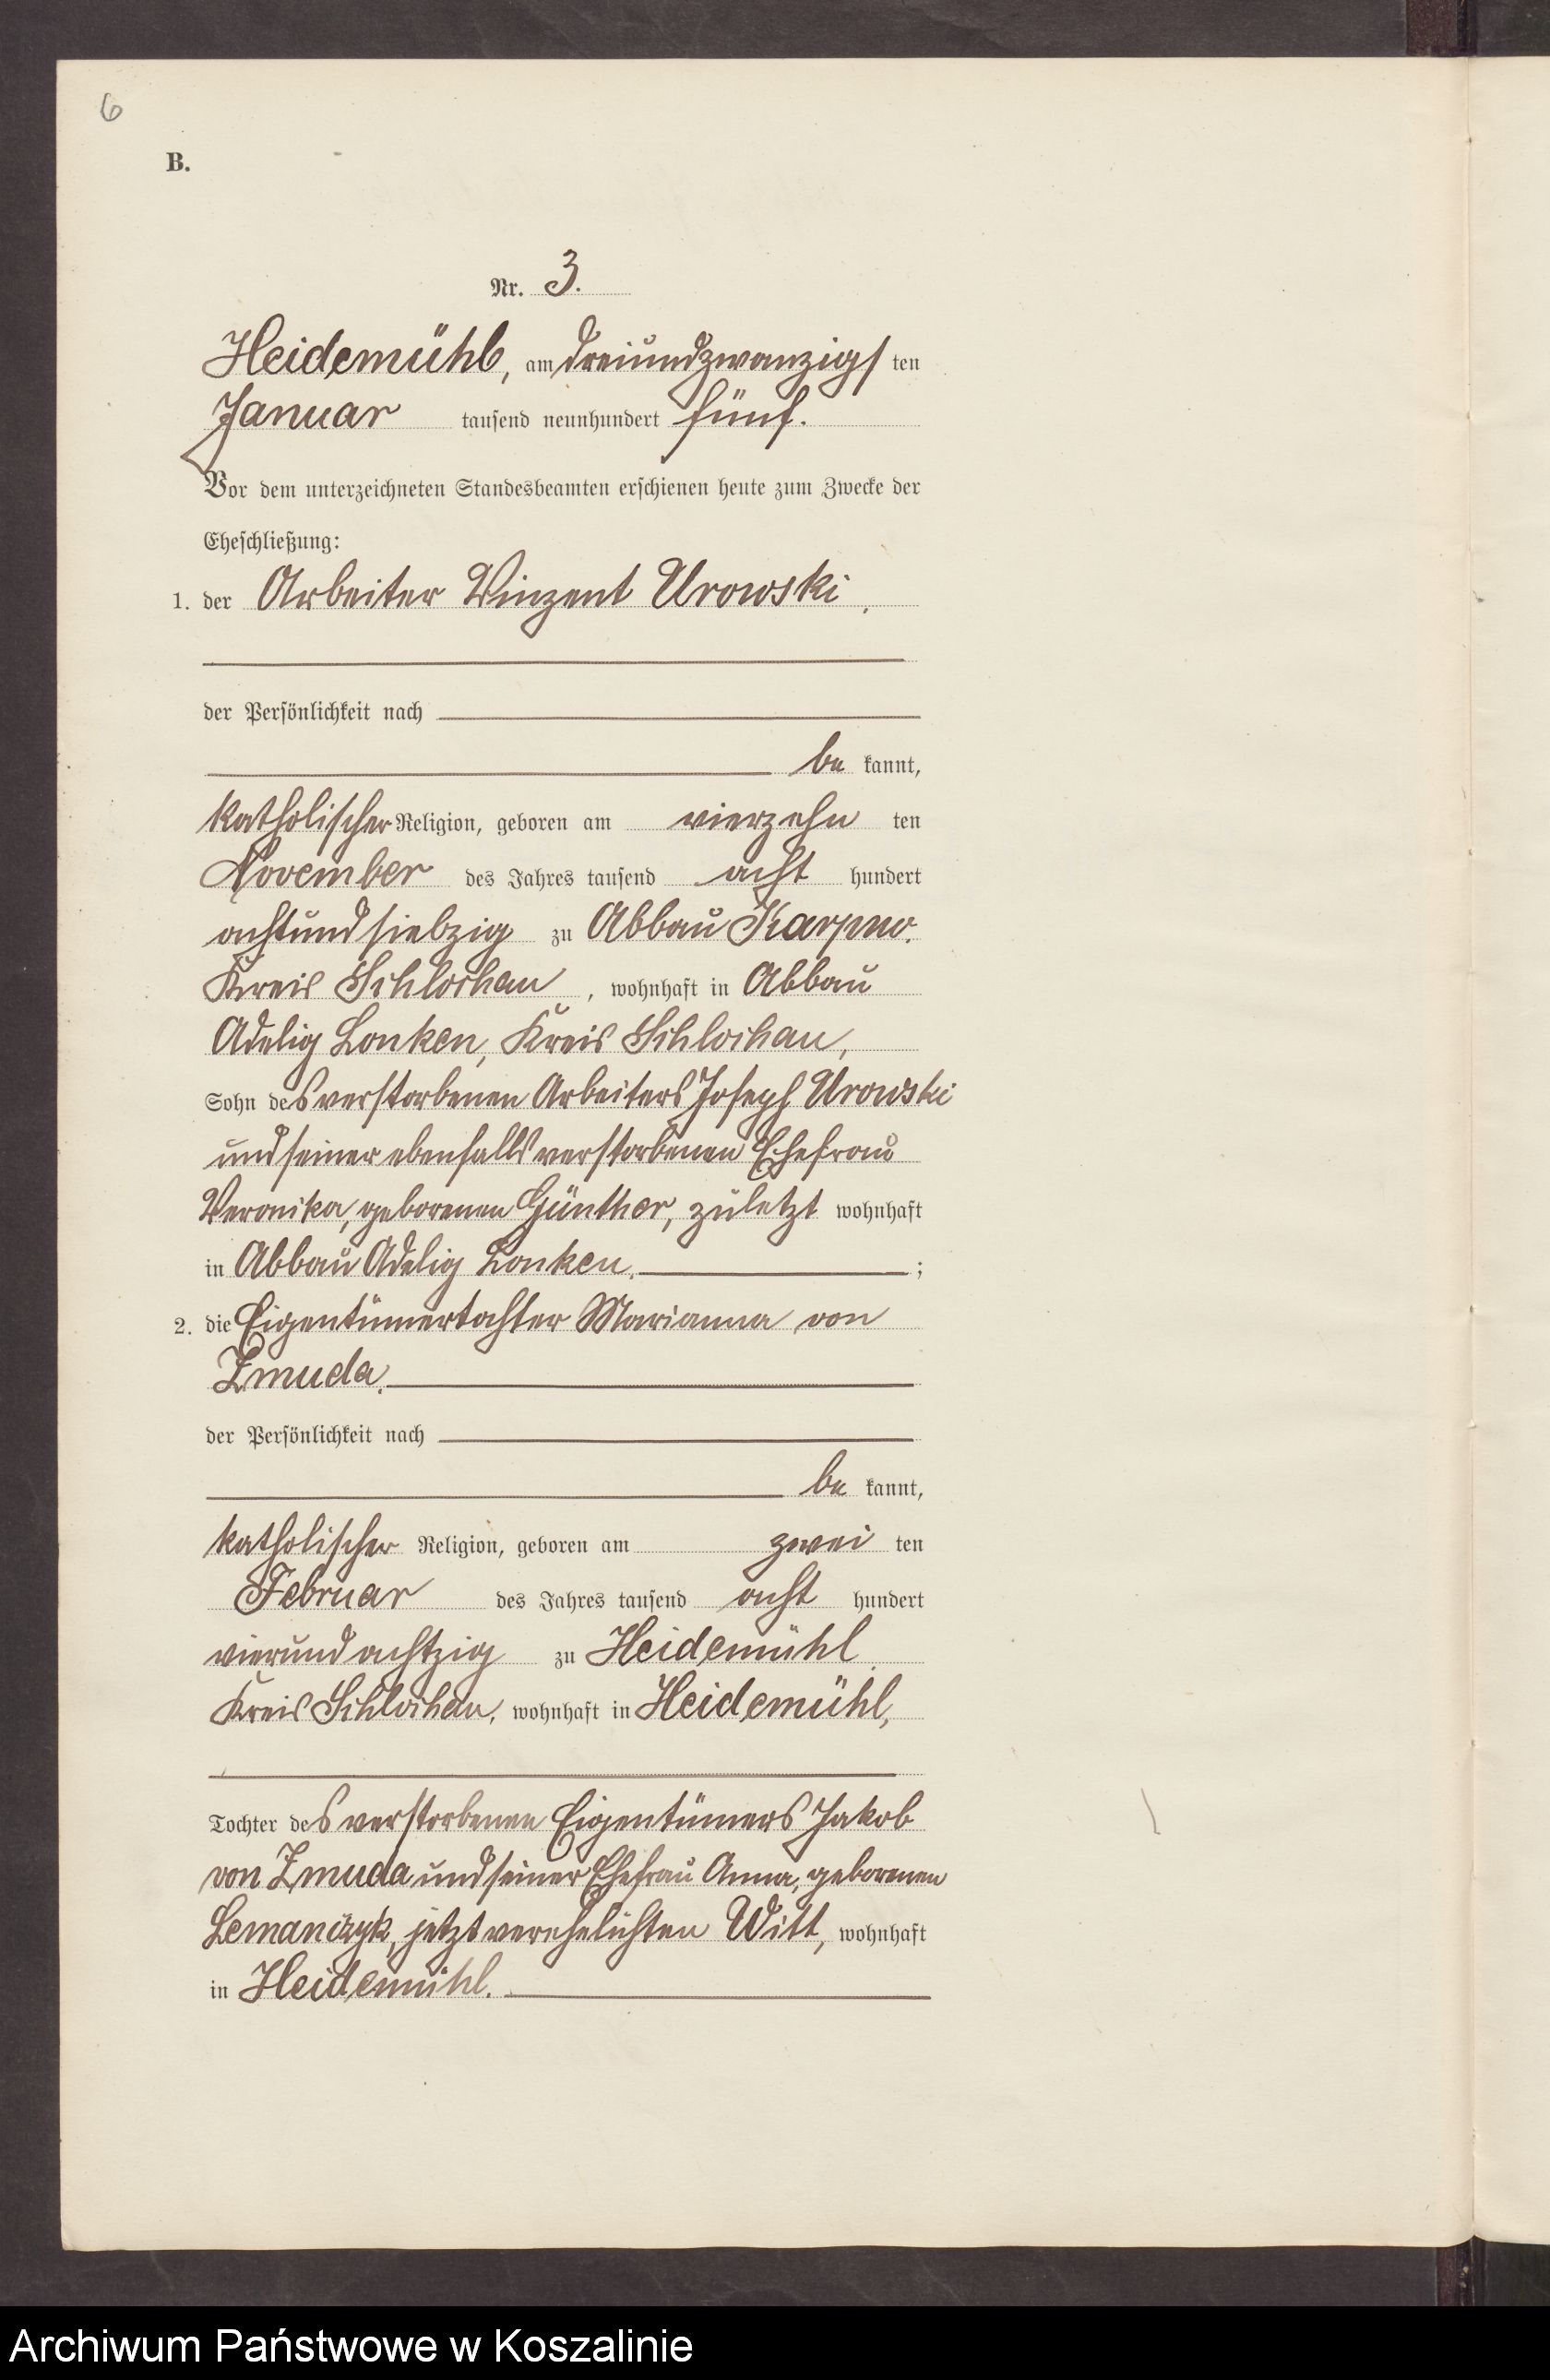 6
B.
Nr. 3.
Heidemühl, am dreiundzwanzigs ten
Januar tausend neunhundert fünf.
Vor dem unterzeichneten Standesbeamten erschienen heute zum Zwecke der
Eheschließung:
1. der Arbeiter Vinzent Urowski,
der Persönlichkeit nach
be kannt,
katholischer Religion, geboren am vierzehn ten
November des Jahres tausend acht hundert
achtundsiebzig zu Abbau Karpno.
Kreis Schlochau, wohnhaft in Abbau
Adelig Lonken, Kreis Schlochau,
Sohn des verstorbenen Arbeiters Joseph Urowski
und seiner ebenfalls verstorbenen Ehefrau
Veronika, geborenen Günther, zuletzt wohnhaft
in Abbau Adelig Lonken. ;
2. die Eigentümertochter Marianna von
Zmuda,
der Persönlichkeit nach
be kannt,
katholischer Religion, geboren am zwei ten
Februar des Jahres tausend acht hundert
vierundachtzig zu Heidemühl
Kreis Schlochau, wohnhaft in Heidemühl,
Tochter des verstorbenen Eigentümers Jakob
von Zmuda und seiner Ehefrau Anna, geborenen
Lemanczyk, jetzt verehelichten Witt, wohnhaft
in Heidemühl.
Archiwum Państwowe w Koszalinie